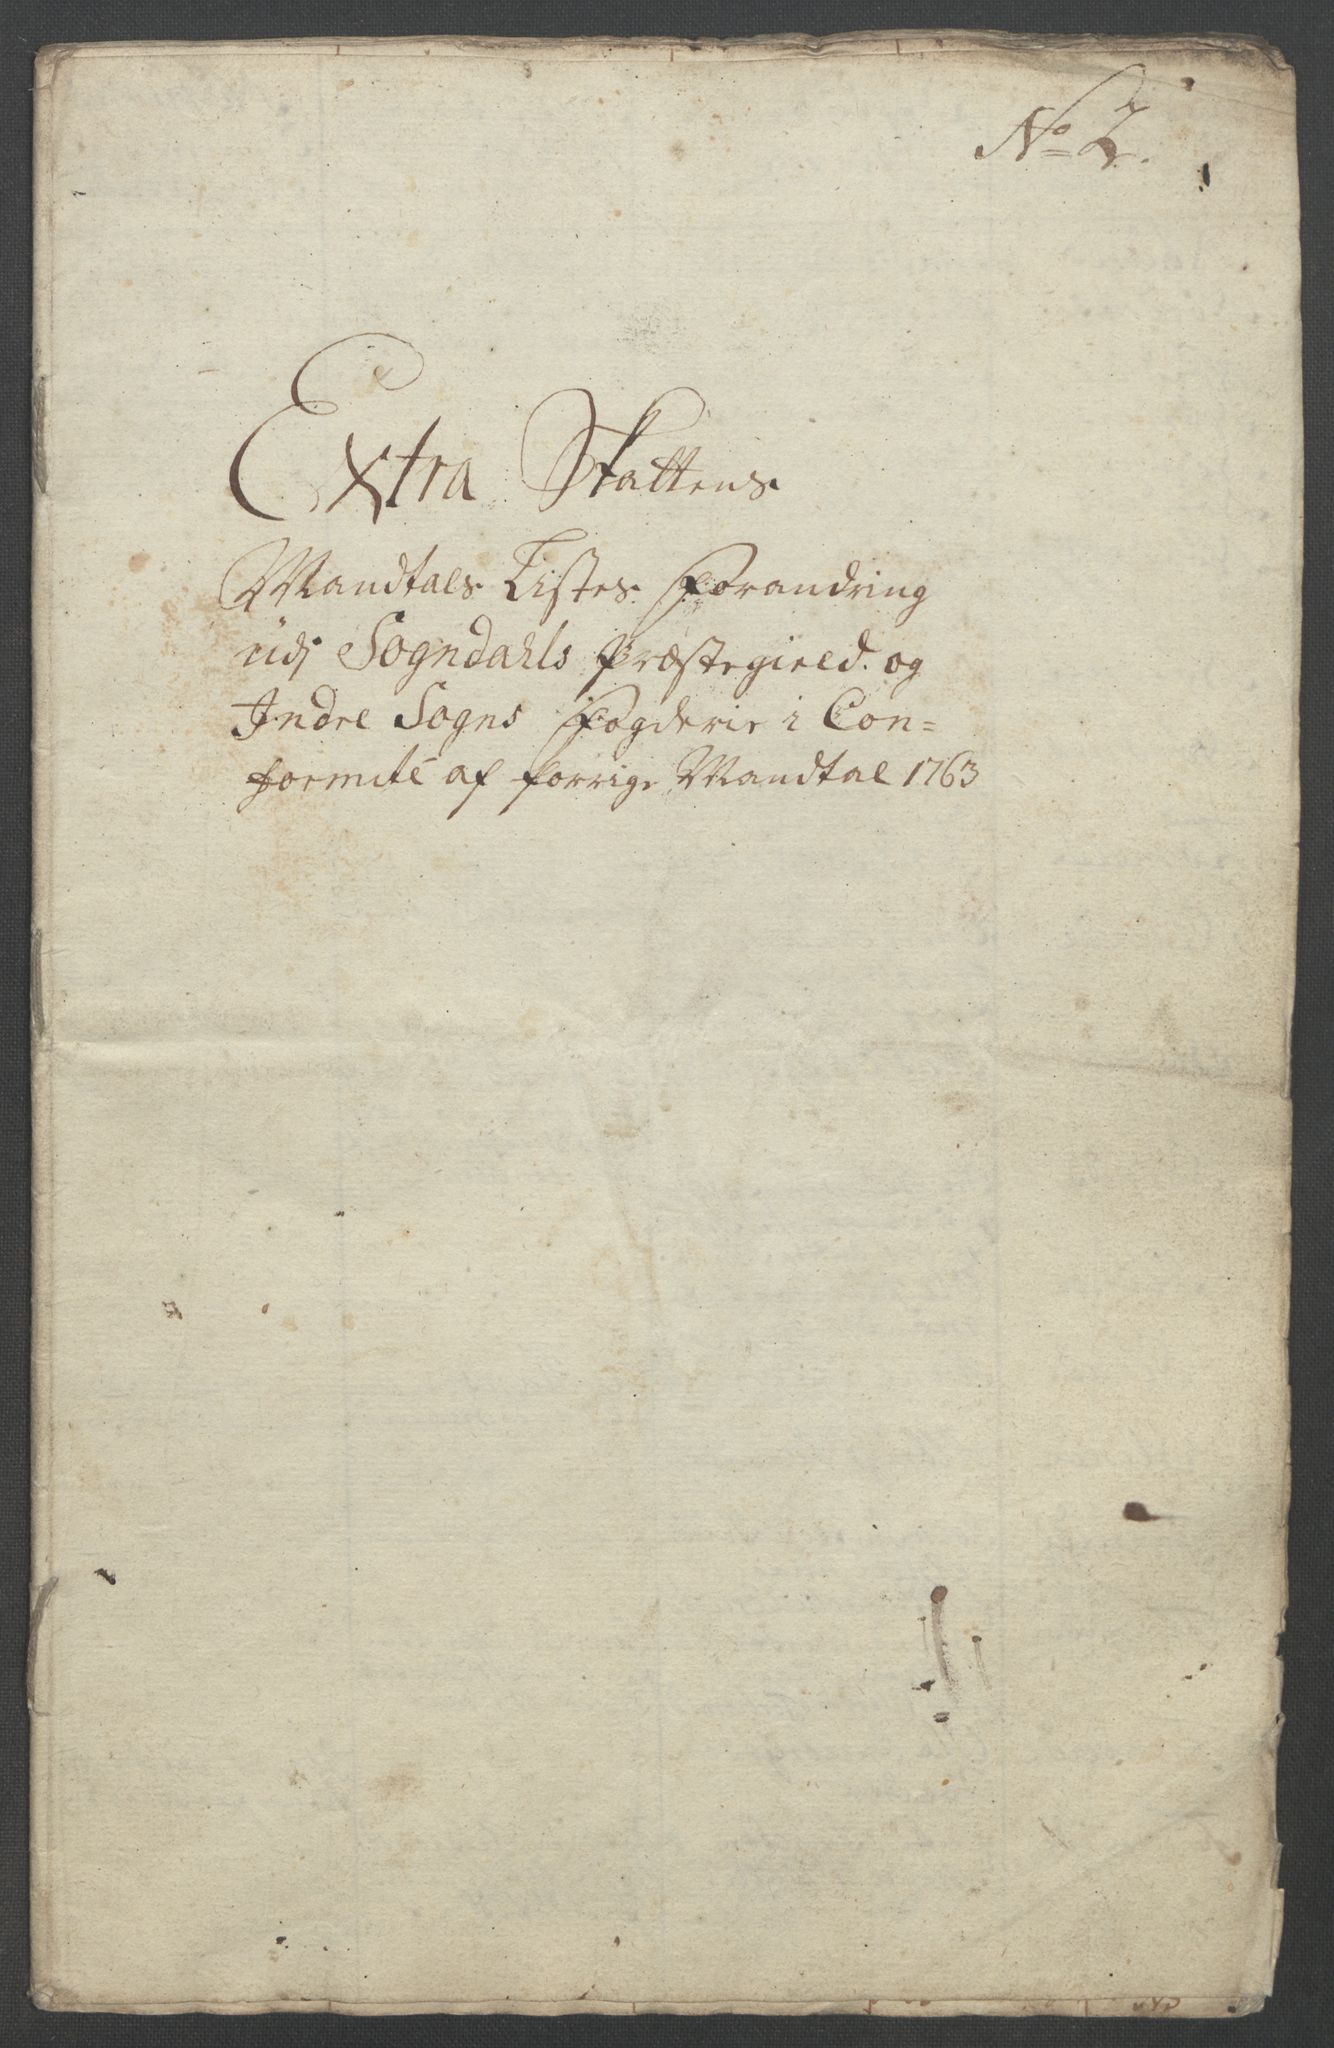 No 2.
Extra Skattens
Mandtals Listes Forandring
udj Sogndahls Præstegield og
Indre Sogns Fogderie i Con=
formité af forrige Mandtal 1763